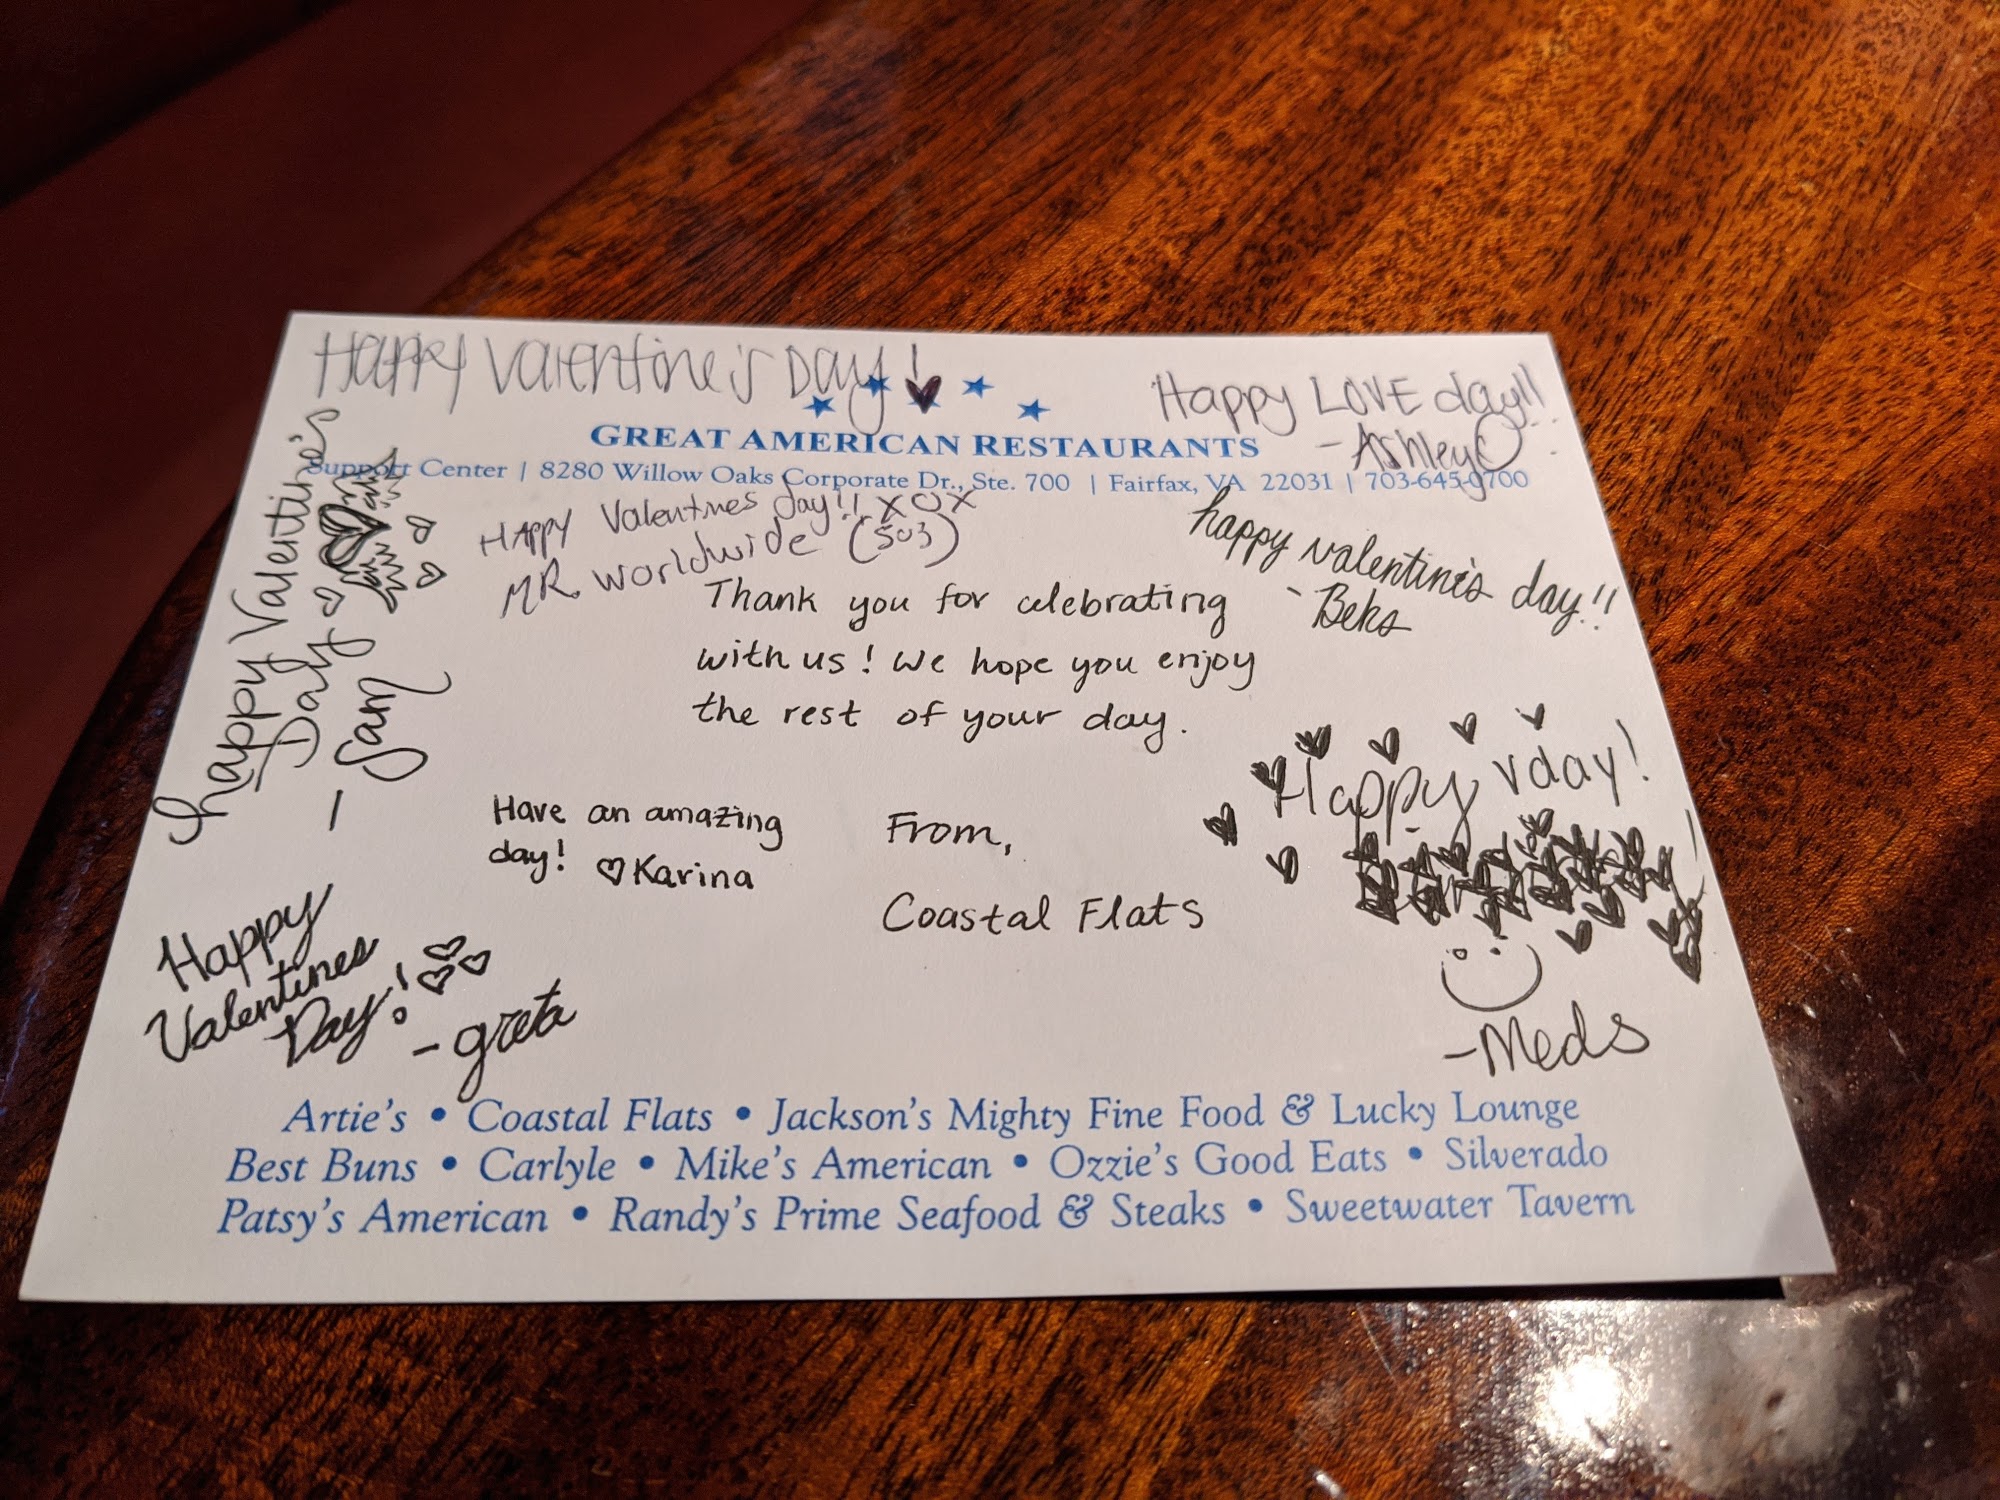 Happy Valentine's Day!
Happy LOVE day!!
- Ashley C
GREAT AMERICAN RESTAURANTS
Support Center | 8280 Willow Oaks Corporate Dr., Ste. 700 | Fairfax, VA 22031 | 703-645-0700
happy Valentine's
Day
- Sam
HAPPY Valentines day!! XOX
MR. Worldwide (503)
happy valentine's day!!
- Beks
Thank you for celebrating
with us! We hope you enjoy
the rest of your day.
Happy vday!
- Meds
Have an amazing
day! ♡Karina
From,
Coastal Flats
Happy
Valentines
Day!
- greta
Artie's • Coastal Flats • Jackson's Mighty Fine Food & Lucky Lounge
Best Buns • Carlyle • Mike's American • Ozzie's Good Eats • Silverado
Patsy's American • Randy's Prime Seafood & Steaks • Sweetwater Tavern